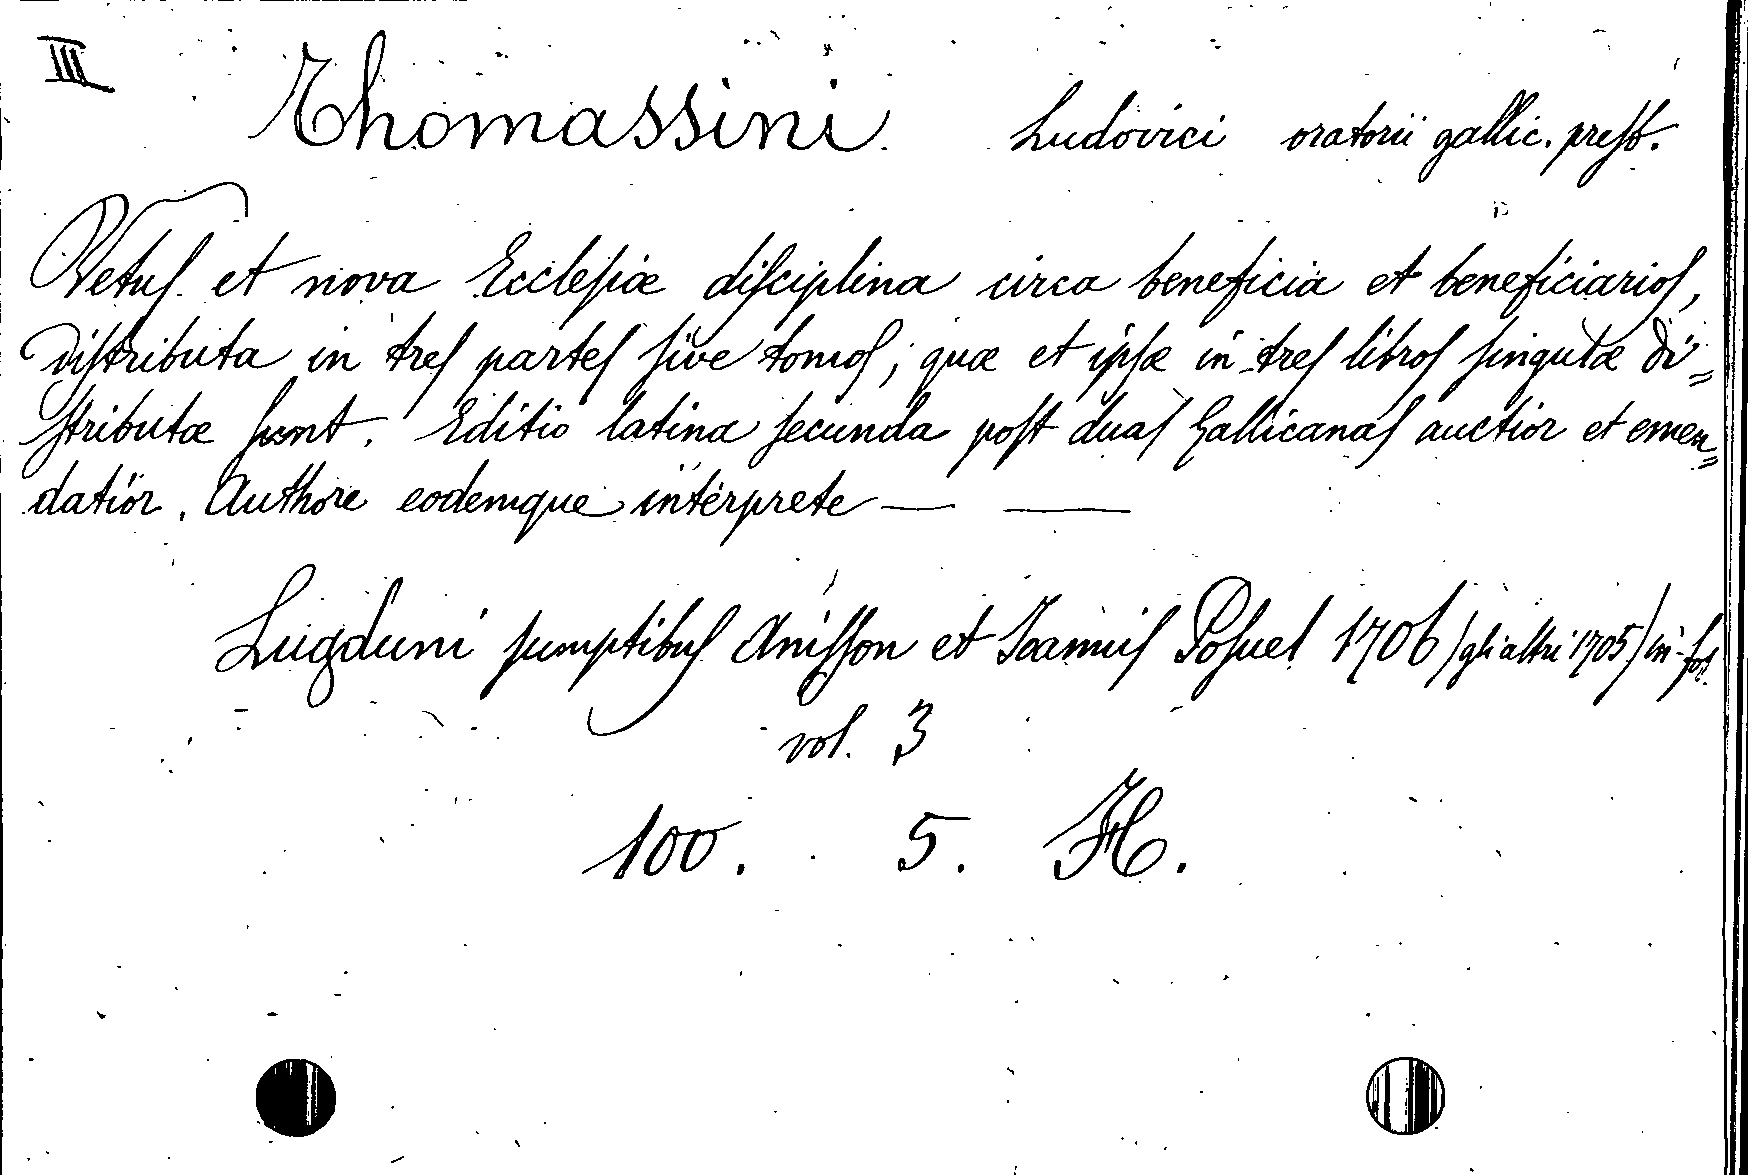 III
Thomassini Ludovici oratorii gallic. presb.
Vetus et nova Ecclesiæ disciplina circa beneficia et beneficiarios,
distributa in tres partes sive tomos; quæ et ipsæ in tres libros singulæ di=
stributæ sunt. Editio latina secunda post duas Gallicanas auctior et emen=
datior. Authore eodemque interprete — —
Lugduni sumptibus Anisson et Joannis Posuel 1706 /gli altri 1705/ in-fol.
vol. 3
100. 5. H.